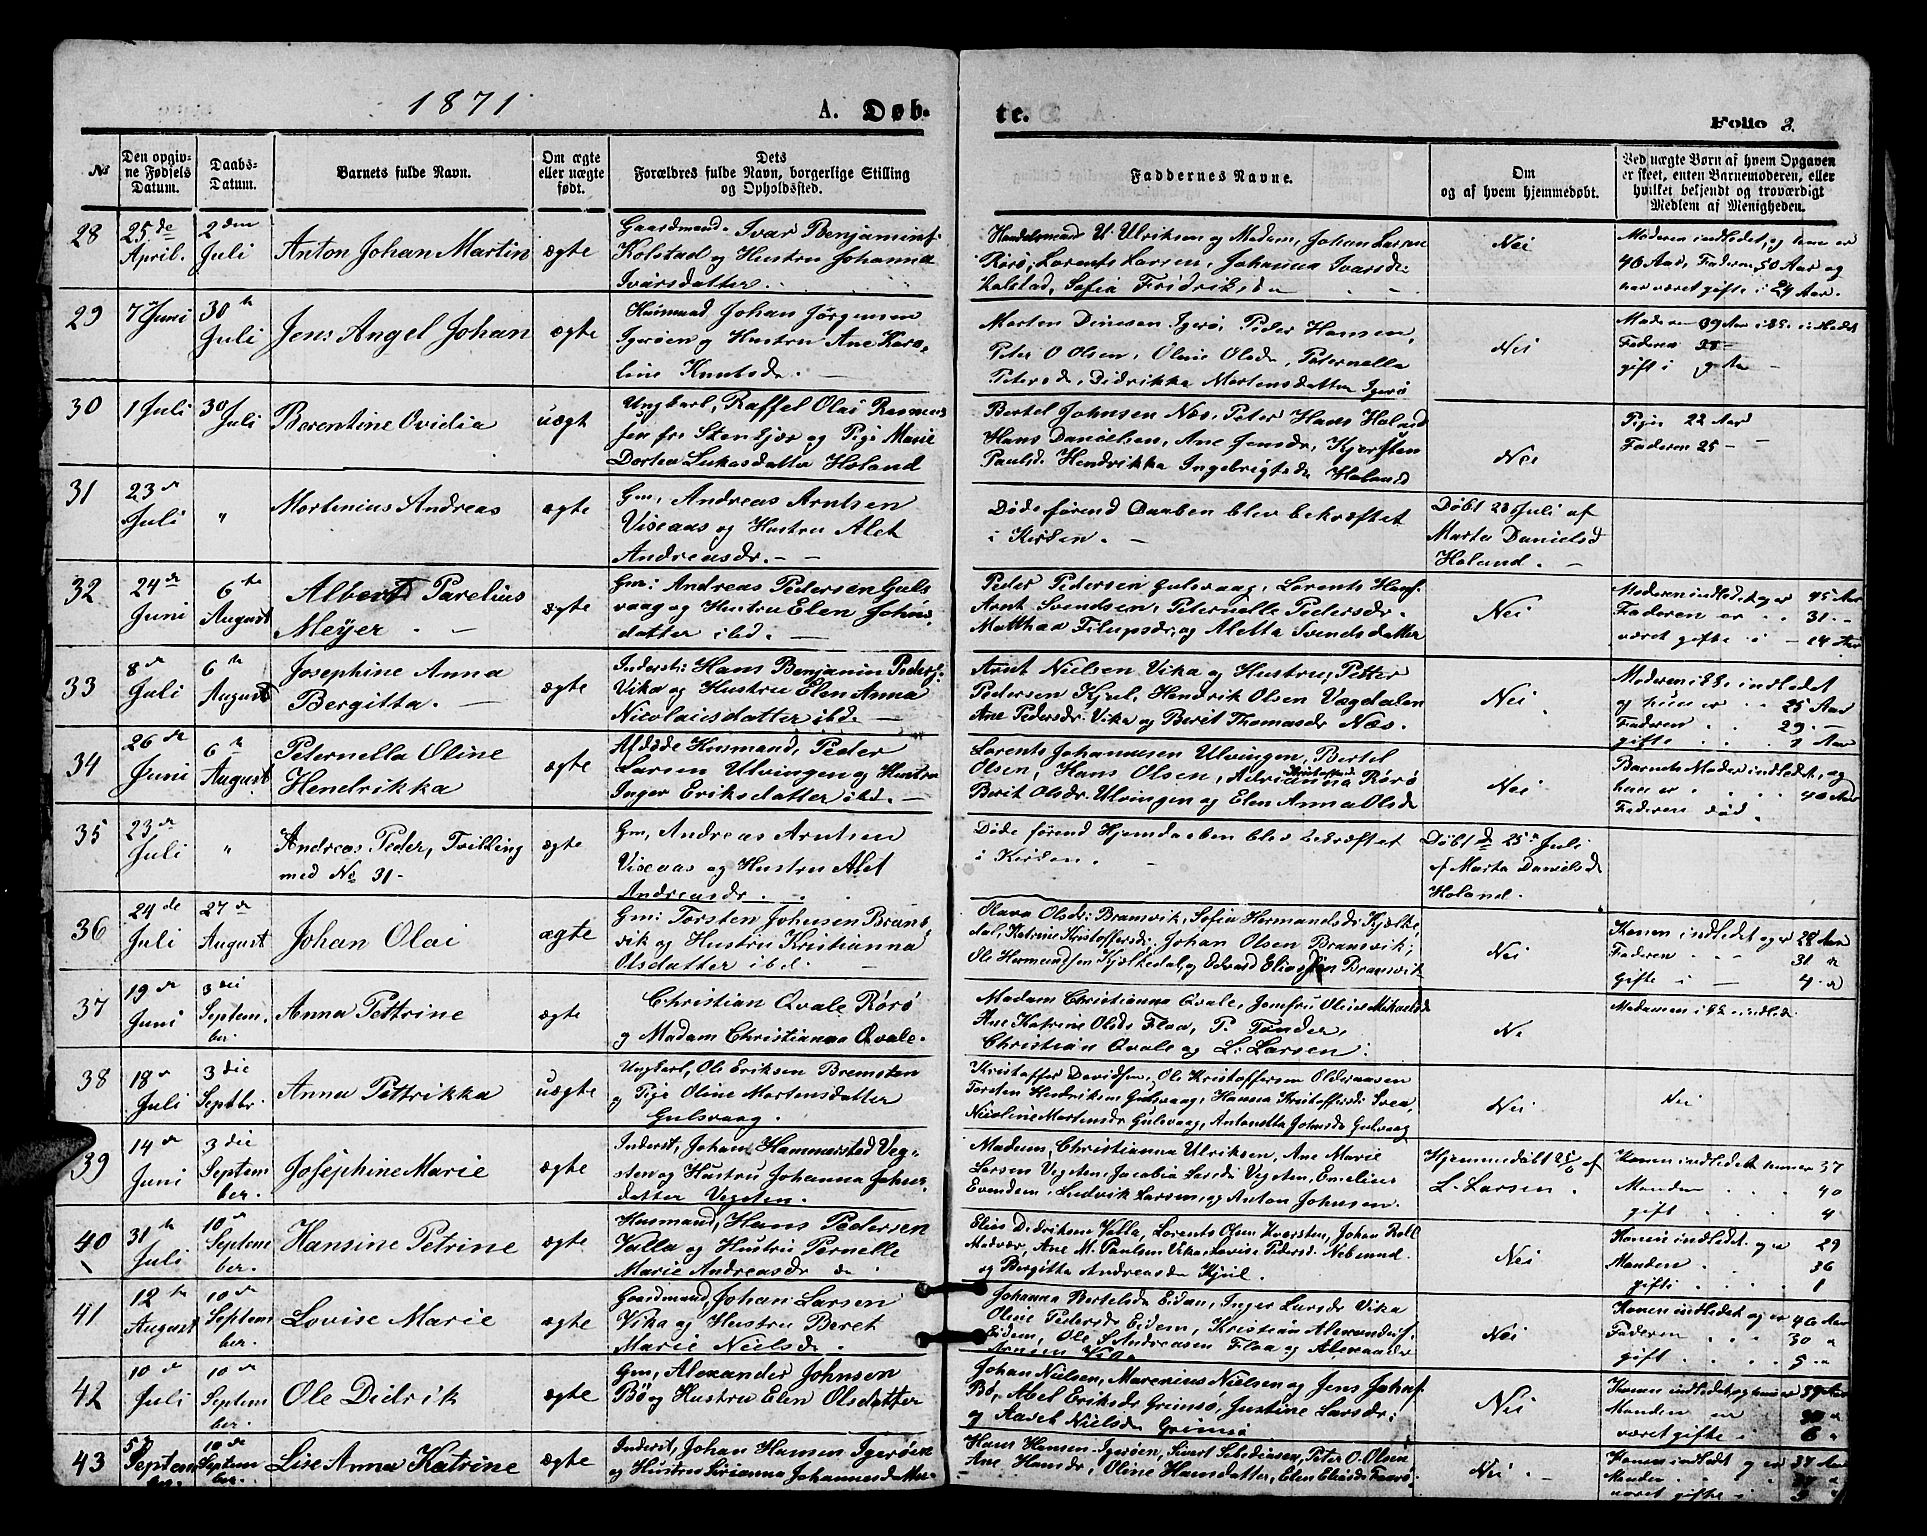 1871
A. Døb-
te.
Folio 3.
№
Den opgiv-
ne Fødsels
Datum.
Daabs-
Datum.
Barnets fulde Navn.
Om ægte
eller uægte
født.
Dets
Forældres fulde Navn, borgerlige Stilling
og Opholdssted.
Faddernes Navne.
Om
og af hvem hjemmedøbt.
Ved uægte Børn af hvem Opgaven
er skeet, enten Barnemoderen, eller
hvilket bekjendt og troværdigt
Medlem af Menigheden.
28
25de
April.
2den
Juli
Anton Johan Martin
ægte
Gaardmand Ivar Benjamins.
Kolstad og Hustru Johanna
Ivarsdatter.
Handelsmand U. Ulriksen og Madam, Johan Larsen
Rørø, Lorents Larsen, Johanna Ivarsdr.
Kolstad, Sofia Fridriksda
Nei
Moderen indledet, og hun er
40 Aar, Faderen 50 Aar og
har været gifte i 24 Aar.
29
7 Juni
30te
Juli
Jens Angel Johan
ægte
Husmand Johan Jørgensen
Igerøen og Hustru Ane Karo-
line Knutsda.
Morten Dinesen Igerø, Peder Hansen,
Peter O Olsen, Oline Olsda, Peternella
Petersda, Didrikka Mortensdatter Igerø
Nei
Moderen 39 Aar indledet
Faderen
gift i 9 Aa
30
1 Juli
30
Juli
Berentine Ovidia
uægt
Ungkarl, Raffel Olai Rasmus
sen fr. Stenkjær og Pige Marie
Dortea Lukasdatter Holand
Bertel Johnsen Næs, Peter Hans Holand
Hans Danielsen, Ane Jensdr, Kjersten
Paulsd. Hendrikka Ingebrigtsda Holand
Nei
Pigen 22 Aar
Faderen 25 —
31
23de
Juli
"
Mortinius Andreas
ægte
Gm, Andreas Arntsen
Viseaas og Hustru Alet
Andreasdr.
Døde førend Daaben blev bekræftet
i Kirken.
Døbt 23 Juli af
Marta Danielsd
Holand.
32
24de
Juni
6te
August
Albert Parelius
Meyer.
ægte
Gm: Andreas Pedersen Guls
vaag og Hustru Elen Johns
datter ibd.
Peder Pedersen Gulsvaag, Lorents Hans.
Arnt Svendsen, Peternelle Pedersdr.
Matthaa Filupsdr, og Aletta Svendsdatter
Nei
Moderen indledet og er 45 Aar
Faderen er 31.
været gifte i 14 Aar
33
8de
Juli
6te
August
Josephine Anna
Bergitta.
ægte
Inderst: Hans Benjamin Peders.
Vika og Hustru Elen Anna
Nicolaisdatter ibd.
Arnt Nielsen Vika og Hustru, Petter
Pedersen Kjul, Hendrik Olsen Vægdalen
Ane Pedersdr. Vika og Berit Thomasdr Næs.
Nei
Moderen indledet
og hun er 25 Aar
Faderen 29.
gifte 1 Aar
34
26de
Juni
6te
August
Peternella Oline
Hendrikka
ægte
Afdøde Husmand, Peder
Larsen Ulvingen og Hustru
Inger Eriksdatter ibd.
Lorents Johannesen Ulvingen, Bertel
Olsen, Hans Olsen, Adrianna Kristoffersd Rørø
Berit Olsdr. Ulvingen og Elen Anna Olsd
Nei
Barnets Moder indledet, og
hun er 40 Aar
Faderen død.
35
23de
Juli
"
Andreas Peder, Tvilling
med No 31
ægte
Gm, Andreas Arntsen
Viseaas og Hustru Alet
Andreasdr.
Døde førend Hjemdaaben blev bekræftet
i Kirken.
Døbt d 25 Juli
af Marta Danielsd
Holand.
36
24de
Juli
27de
August
Johan Olai
ægte
Gm: Torsten Johnsen Brans
vik og Hustru Kristianna
Olsdatter ibd.
Olava Olsdr: Bransvik, Sofia Hermandsdr Kjølke
dal, Katrine Kristoffersdr, Johan Olsen Bransvik,
Ole Hermundsen Kjølkedal, og Edvard Eliassen Bransvik
Nei
Konen indledet og er 28 Aar
Faderen 31 "
gifte i 4 "
37
19de
Juni
3die
Septem-
ber.
Anna Pettrine
ægte
Christian Qvale Rørø
og Madam Christianna Qvale.
Madam Christianna Qvale, Jomfru Oline Mikaelsd
Ane Katrine Olsda Flaa, P. Tønder,
Christian Qvale og L. Larsen.
Ne
38
18
Juli
3die
Septbr.
Anna Pettrikka
uægte
Ungkarl, Ole Eriksen Bremsten
og Pige Oline Mortensdatter
Gulsvaag.
Kristoffer Davidsen, Ole Kristoffersen Olderaasen
Torsten Hendriksen Gulsvaag, Hanna Kristoffersdr Svea,
Nicoline Mortensdr Gulsvaag, Antonetta Johnsda Gulsvaag
Nei
Nei
39
14de
Juni
3die
Septem
ber.
Josephine Marie
ægte
Inderst, Johan Hammarsted Veg-
sten og Hustru Johanna Johns-
datter Vegsten.
Madam, Christianna Ulriksen, Ane Marie
Larsen Vegsten, Jacobia Larsd. Vegsten, Emelius
Evendsen, Ludvik Larsen, og Anton Johnsen.
Hjemmedøbt 25/6 af
L. Larsen.
Konen indledet hun er 37
Manden 40
gift 4
40
31te
Juli
10de
Septem
ber.
Hansine Petrine
ægte
Husmand, Hans Pedersen
Valla og Hustru Pernelle
Marie Andreasdr
Elias Didriksen Valla, Lorents Olsen Kvorsten, Johan Roll
Medvær, Ane M. Paulsen Vika, Lovise Pedersd.
og Bergitta Andreasda Kjul.
Nei
Konen indledet og er 29
Manden 36
gifte 1
41
12te
August
10de
Septem
ber.
Lovise Marie
ægte
Gaardmand, Johan Larsen
Vika og Hustru Beret
Marie Nielsda.
Johanna Bertelsda Eidem, Inger Larsda Vika
Oline Pedersda Eidem, Kristian Alexanders.
Eidem, Ole S. Andreasen Flaa og Alexander
Arnsen Vika
Nei
Konen indledet og er 46 Aar
Faderen 30 "
gift 5 "
42
10de
Juli
10de
Septem
ber.
Ole Didrik
ægte
Gm, Alexander Johnsen
Bø og Hustru Elen Olsdatter
Johan Nielsen, Marenius Nielsen og Jens Johns.
Bø, Abel Eriksdr Grimsø, Justine Larsdr,
og Aaret Nielsda Grimsø
Nei
Konen indledet, og hun er 39 Aar
Manden er 30 "
været gifte 6 "
43
5te
Septem
10de
Septem
ber.
Lise Anna Katrine
ægte
Inderst, Johan Hansen Igerøen
og Hustru Sirianna Johannesdatter
Hans Hansen Igerøen, Sivert Peter O. Olsen
Ane Hansdr, Oline Hansdatter, Elen Eliasda
Nei
Konen indledet og er 34 Aar
Manden
været gifte i 3 "